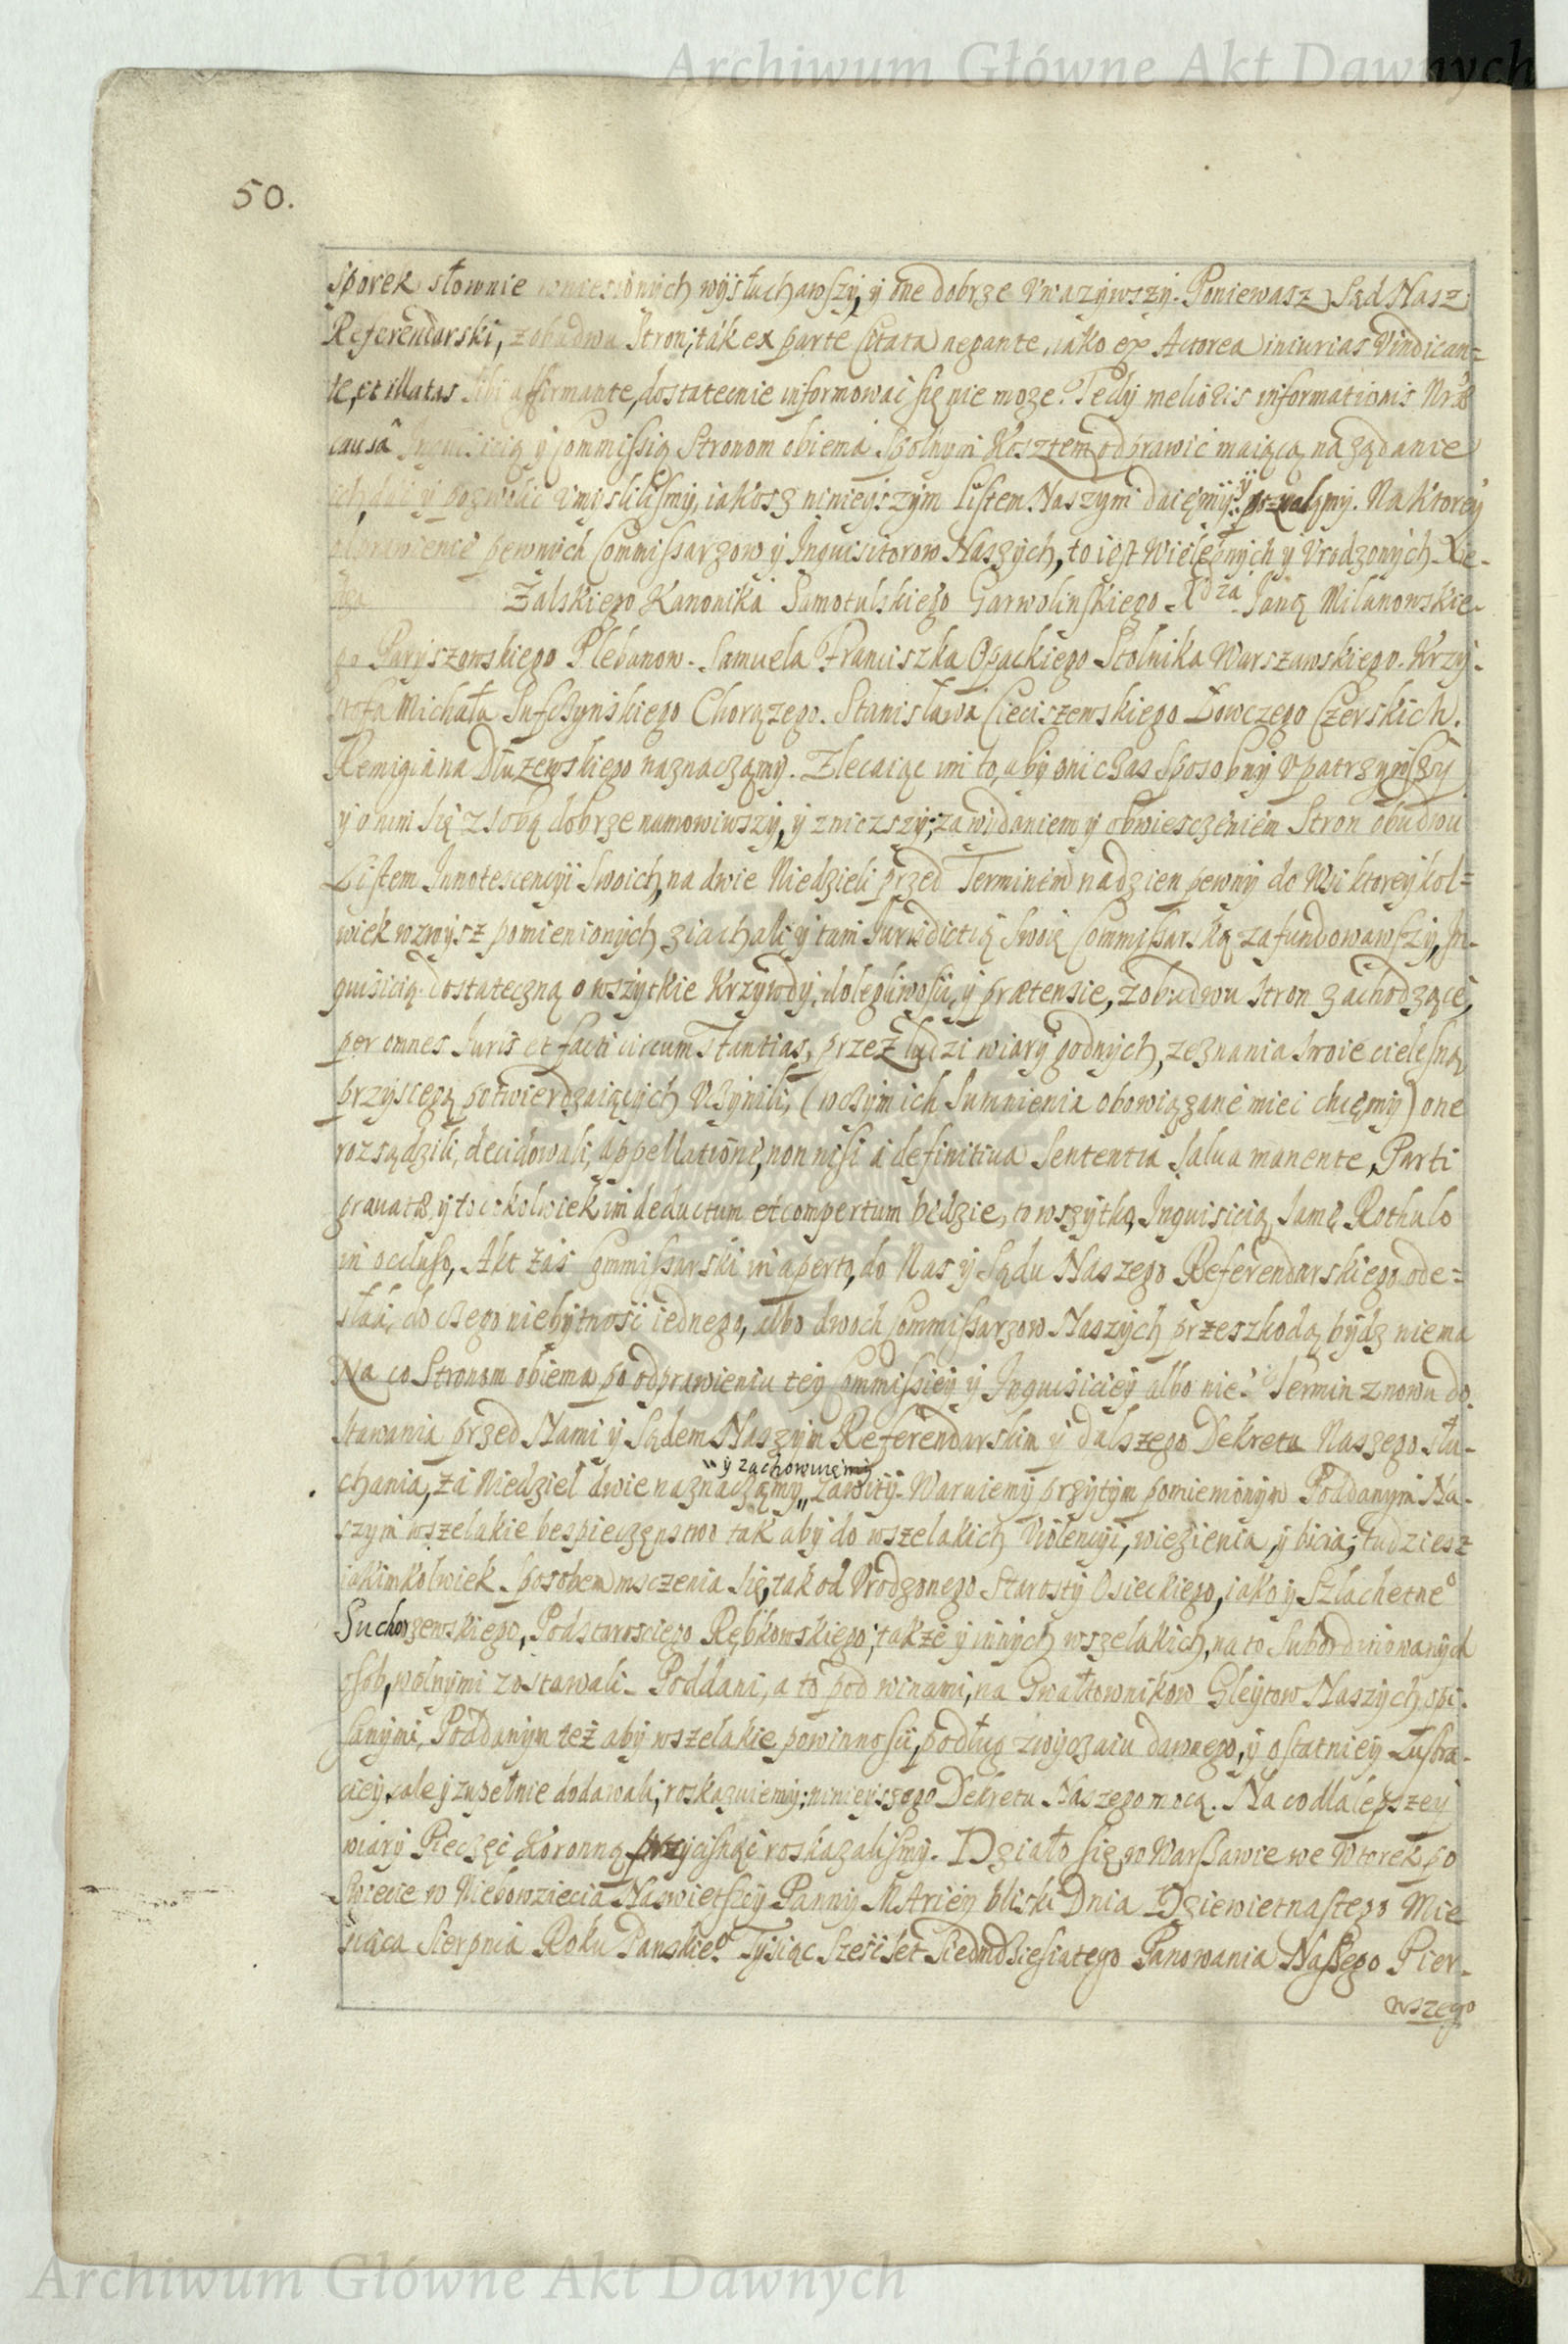 Archiwum Główne Akt Dawnych
50.
sporek słownie wniesionych wysłuchawszy, y one dobrze uważywszy. Poniewasz Sąd Nasz
Referendarski, z obudwu Stron, ták ex parte Citata negante, iako ex Actorea iniurias vindican=
te, et illatas sibi affirmante, dostatecnie informować się nie moze. Tedy melioris informationis Nræ
causâ Inquisicią y Commissią Stronom obiema spolnym Kosztem odprawić maiącą na ządanie
ich dać y pozwolić umislilismy, iakosz ninieyszym Listem Naszym daięmy y pozwalamy. Na ktorey
odprawienie pewnych Commissarzow y Inquisitorow Naszych, to iest Wielebnych y Urodzonych Xie-
dza Zalskiego Kanonika Samotulskiego Garwolinskiego Xdza Janą Milanowskie-
go Paryszowskiego Plebanow. Samuela Franciszka Opackiego Stolnika Warszawskiego. Krzy-
sztofa Michała Sufczynskiego Chorązego. Stanisława Cieciszewskiego Łowczego Czerskich.
Remigiana Dłuzewskiego naznaczamy. Zlecaiąc im to, aby oni czas sposobny upatrzywszy
y o nim się z sobą dobrze namowiwszy, y zniozszy, za widaniem y obwiesczeniem Stron obudwu
Listem Innotescencyi Swoich, na dwie Niedzieli przed Terminem na dzien pewny do Wsi ktoreykol=
wiek wzwysz pomienionych ziachali y tam Jurisdictią Swoię Commissarską zafundowawszy, In-
quisicią dostateczną o wszytkie Krzywdy, dolegliwosci, y prætensie, z obudwu Stron zachodzące,
per omnes Juris et facti circumstantias, przez ludzi wiary godnych, zeznania swoie cielesną
przysięgą potwierdzaiących uczynili, (w czym ich Sumnienia obowiązane mieć chcemy) one
rozsądzili, decidowali, appellatione, non nisi á definitiua Sententia salua manente, Parti
grauatæ, y to cokolwiek im deductum et compertum będzie, to wszytko, Inquisicią Samę Rothulo
in occluso, Akt zás Commissarski in aperto, do Nas y Sądu Naszego Referendarskiego ode=
słali, do czego niebytnosć iednego, albo dwoch Commissarzow Naszych przeszkodą bydz niema
Na co Stronom obiema po odprawieniu tey Commissiey y Inquisiciey albo nie. Termin znowu do
stawania przed Nami y Sądem Naszym Referendarskim y dalszego Dekretu Naszego słu-
chania, zá Niedziel dwie naznaczamy „y zachowuiemy„ zawity. Waruiemy przytym pomienionym Poddanym Na-
szym wszelakie bespieczęnstwo tak aby do wszelakich Violencyi, wiezienia, y bicia; tudziesz
iakimkolwiek sposobem msczenia się, tak od Urodzonego Starosty Osieckiego, iako y Szlachetneo
Suchorzewskiego, Podstarosciego Rębkowskiego; także y innych wszelakich, na to subordinowanych
osób, wolnymi zostawali Poddani, a to pod winami, na Gwałtownikow Gleytow Naszych opi-
sanymi, Poddanym też aby wszelakie powinnosci, podług zwyczaiu dawnego, y ostatniey Lustra-
ciey, cale y zupełnie dodawali, roskazuiemy; ninieyszego Dekretu Naszego mocą. Na co dla lepszey
wiary Pieczęć Koronną przycisnąć roskazalismy. Działo się w Warszawie we Wtorek po
Swiecie w Niebowzięcia Naswiętszey Panny MAriey bliski Dnia Dziewietnastego Mie
siąca Sierpnia Roku Panskieo. Tysiąc Szesćset Siedmdziesiatego Panowania Naszego Pier-
wszego
Archiwum Główne Akt Dawnych